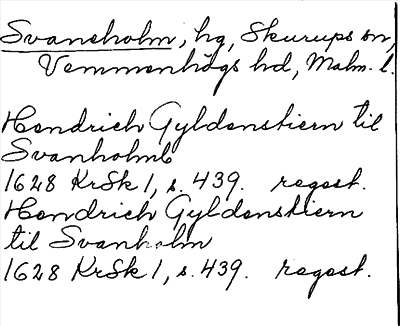 Svaneholm, hg, Skurups sn,
Vemmenhögs hd, Malm. l.
Hendrich Gyldenstiern til
Svanholmb
1628 KrSk 1, s. 439. regest.
Hendrich Gyldenstiern
til Svanholm
1628 KrSk 1, s. 439. regest.